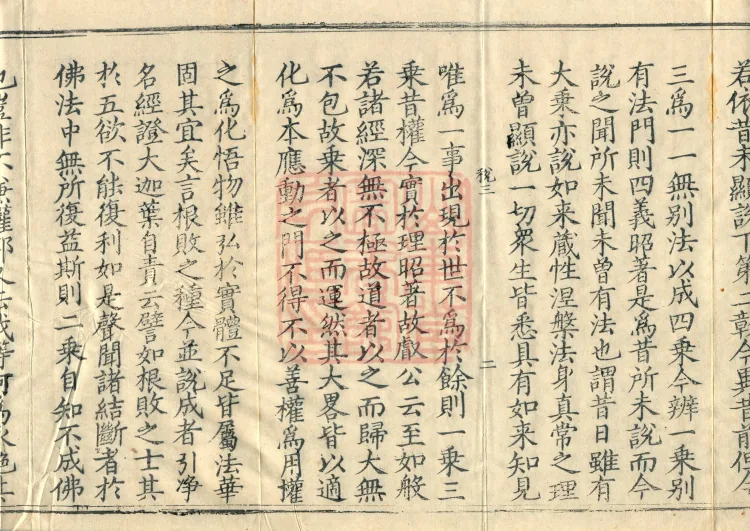 若依昔未顯説下第二章今異昔前但今
三為一一無別法以成四乘今辨一乘別
有法門則四義昭著是為昔所未說而今
說之聞所未聞未曽有法也謂昔日雖有
大乘亦說如来蔵性涅槃法身真常之理
未曽顯說一切衆生皆悉具有如来知見
税三
二
唯為一事出現於世不為於餘則一乘三
乘昔權今實於理昭著故叡公云至如般
若諸經深無不極故道者以之而歸大無
不包故乘者以之而運然其大畧皆以適
化為本應動之門不得不以善權為用權
之為化悟物雖弘於實體不足皆屬法華
固其宜矣言根敗之種今並説成者引浄
名經證大迦葉自責云譬如根敗之士其
於五欲不能復利如是聲聞諸結斷者於
佛法中無所復益斯則二乘自知不成佛